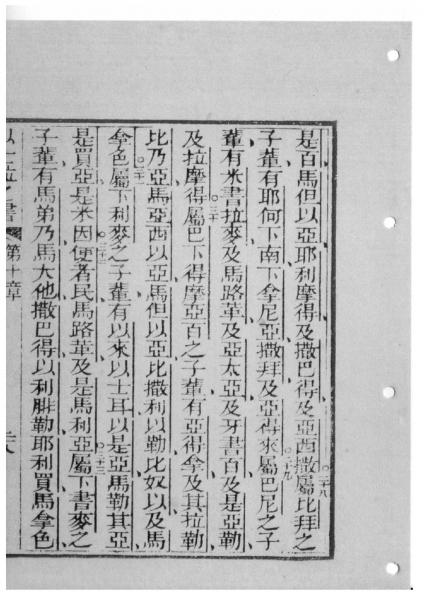 是百馬但以亞耶利摩得及撒巴得及亞西撒屬比拜之
子輩有耶何下南下拿尼亞撒拜及亞得來屬巴尼之子
輩有米書拉麥及馬路革及亞太亞及牙書百及是亞勒
及拉摩得屬巴下得摩亞百之子輩有亞得拿及其拉勒
比乃亞馬亞西以亞馬但以亞比撒利以勒比奴以及馬
拿色屬下利麥之子輩有以來以士耳以是亞馬勒其亞
是買亞是米因便者民馬路革及是馬利亞屬下書麥之
子輩有馬弟乃馬大他撒巴得以利腓勒耶利買馬拿色
以士拉之書 第十章